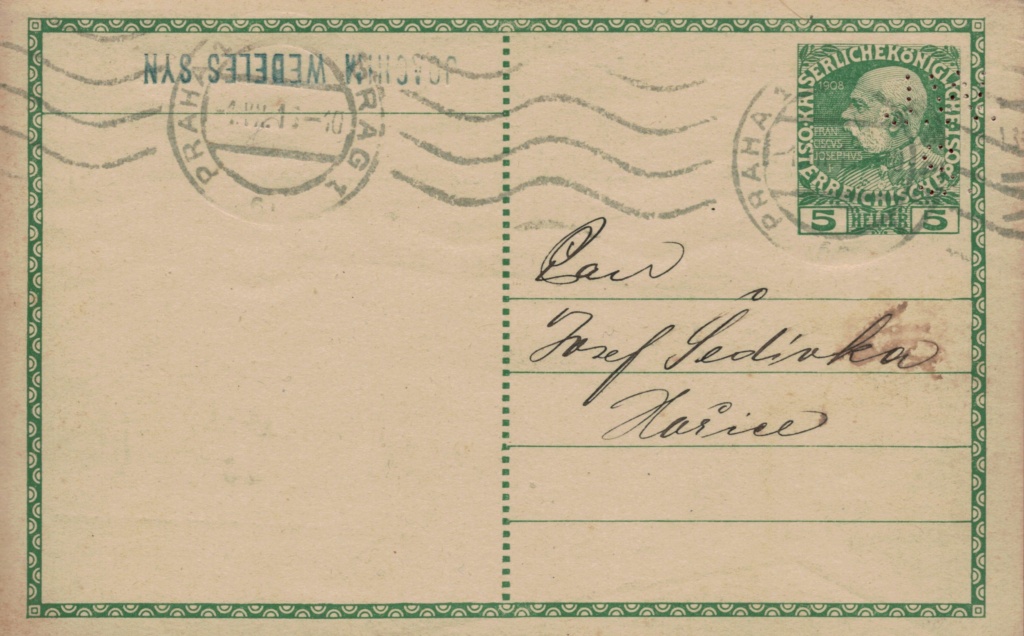 JOACHIMA WEDELES SYN
PRAHA 1 PRAG 1
PRAHA 1
KAISERLICHEKÖNIGLICHE
ÖSTERREICHISCHE POST
1908
FRAN
CISCVS
JOSEPHVS
5 HELLER 5
Pan
Josef Šedivka
Hořice